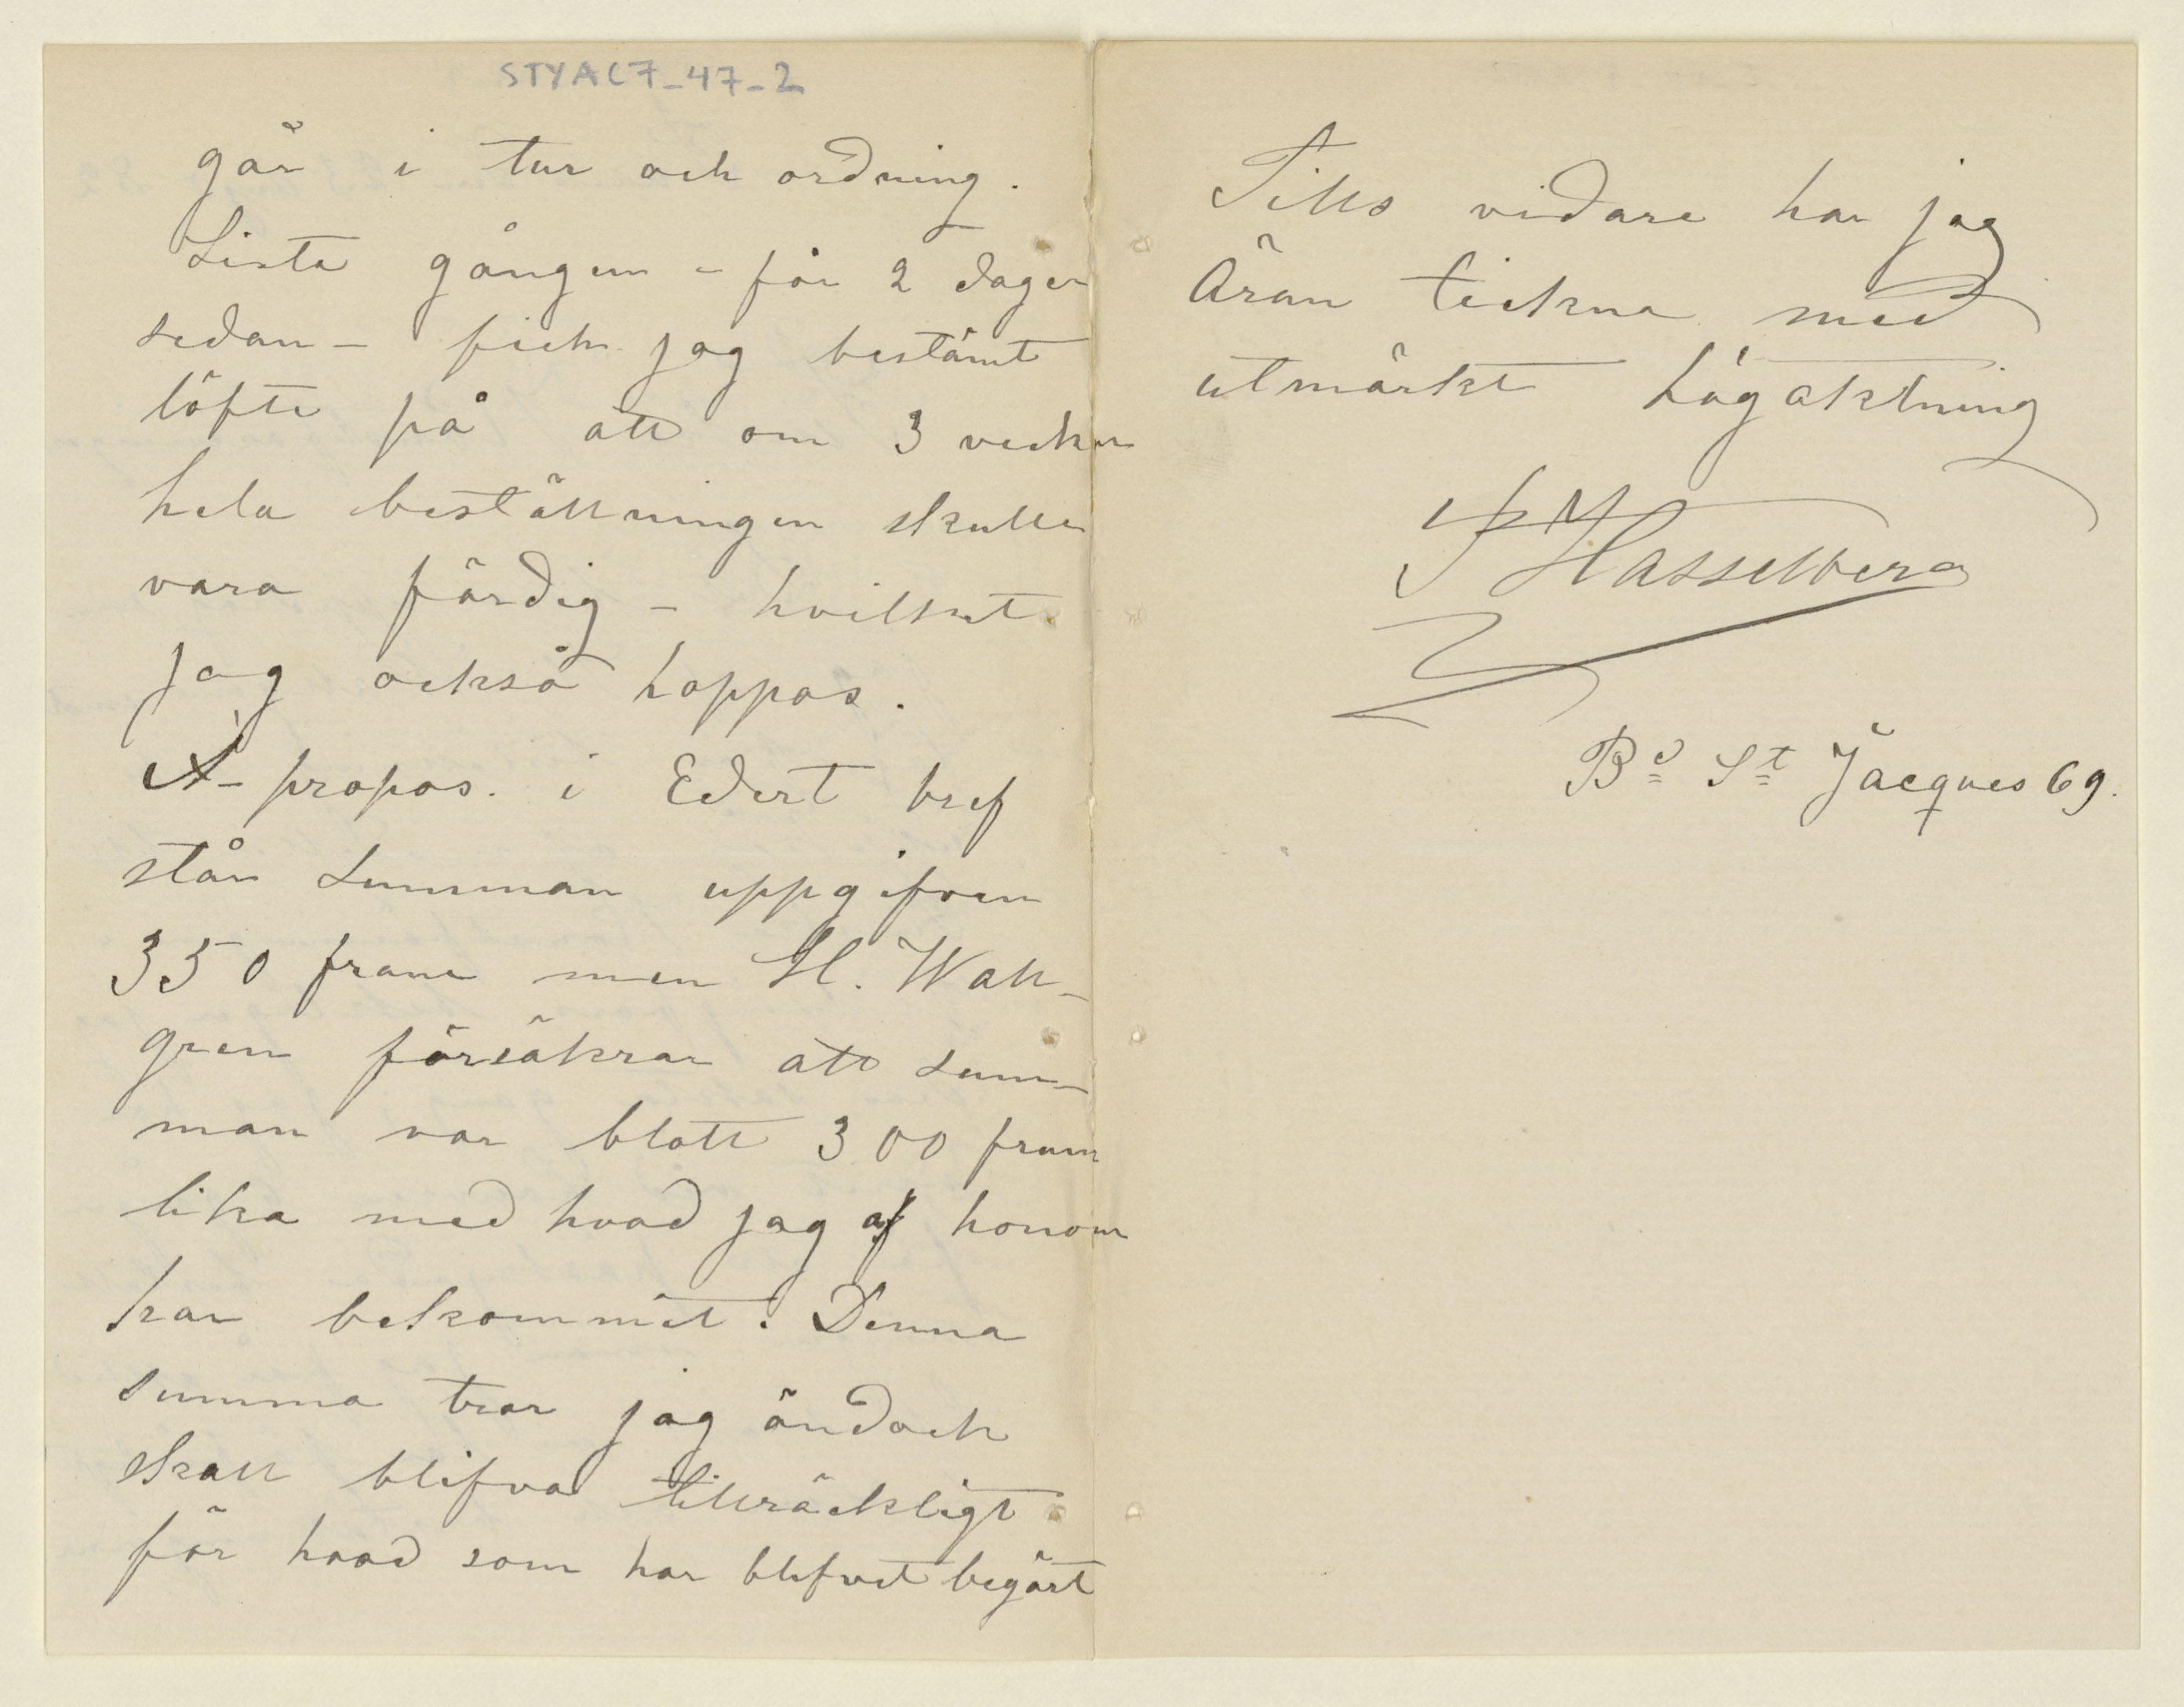 STYAC7_47_2
går i tur och ordning.
Sista gången – för 2 dager
sedan – fick jag bestämt
löfte på att om 3 veckor
hela beställningen skulle
vara färdig – hvilket
jag också hoppas.
À-propos. i Edert bref
står summan uppgifven
350 franc men H. Wall-
gren försäkrar att sum-
man var blott 300 franc
lika med hvad jag af honom
har bekommit. Denna
summa tror jag ändock
skall blifva tillräckligt
för hvad som har blifvet begärt
Tills vidare har jag
äran teckna med
utmärkt högaktning
Hasselberg
Bd St Jacques 69.